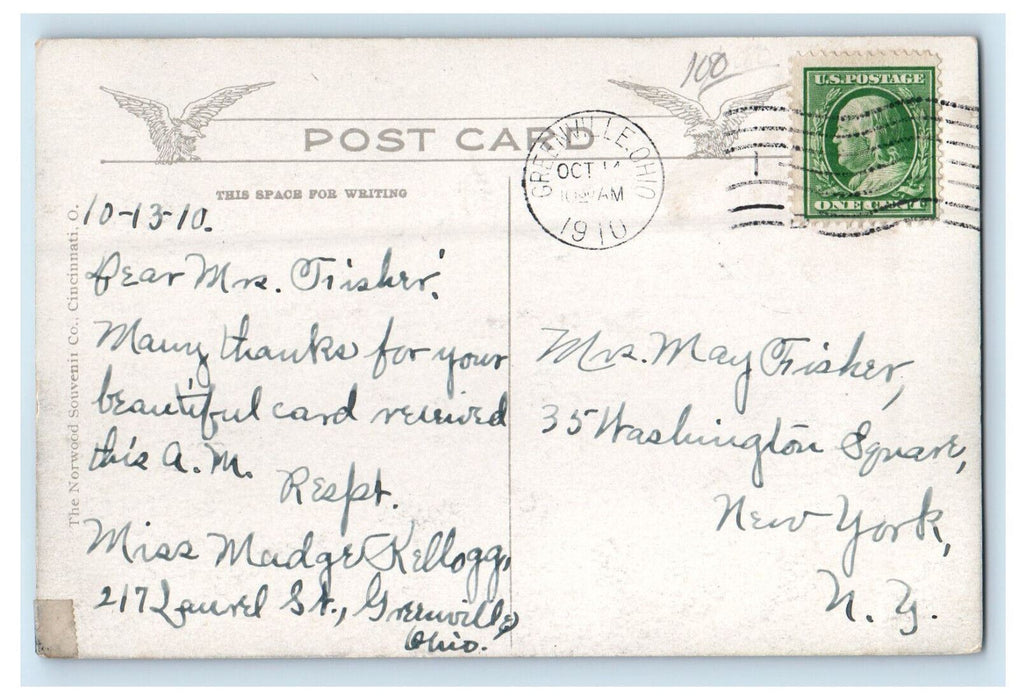 108
POST CARD
U.S. POSTAGE
ONE CENT
GREENVILLE, OHIO
OCT 14
AM
1910
THIS SPACE FOR WRITING
The Norwood Souvenir Co., Cincinnati, O.
10-13-10.
Dear Mrs. Fisher:
Many thanks for your
beautiful card received
this A.M.
Respt.
Miss Madge Kellogg,
217 Laurel St., Greenville,
Ohio.
Mrs. May Fisher,
35 Washington Square,
New York,
N. Y.